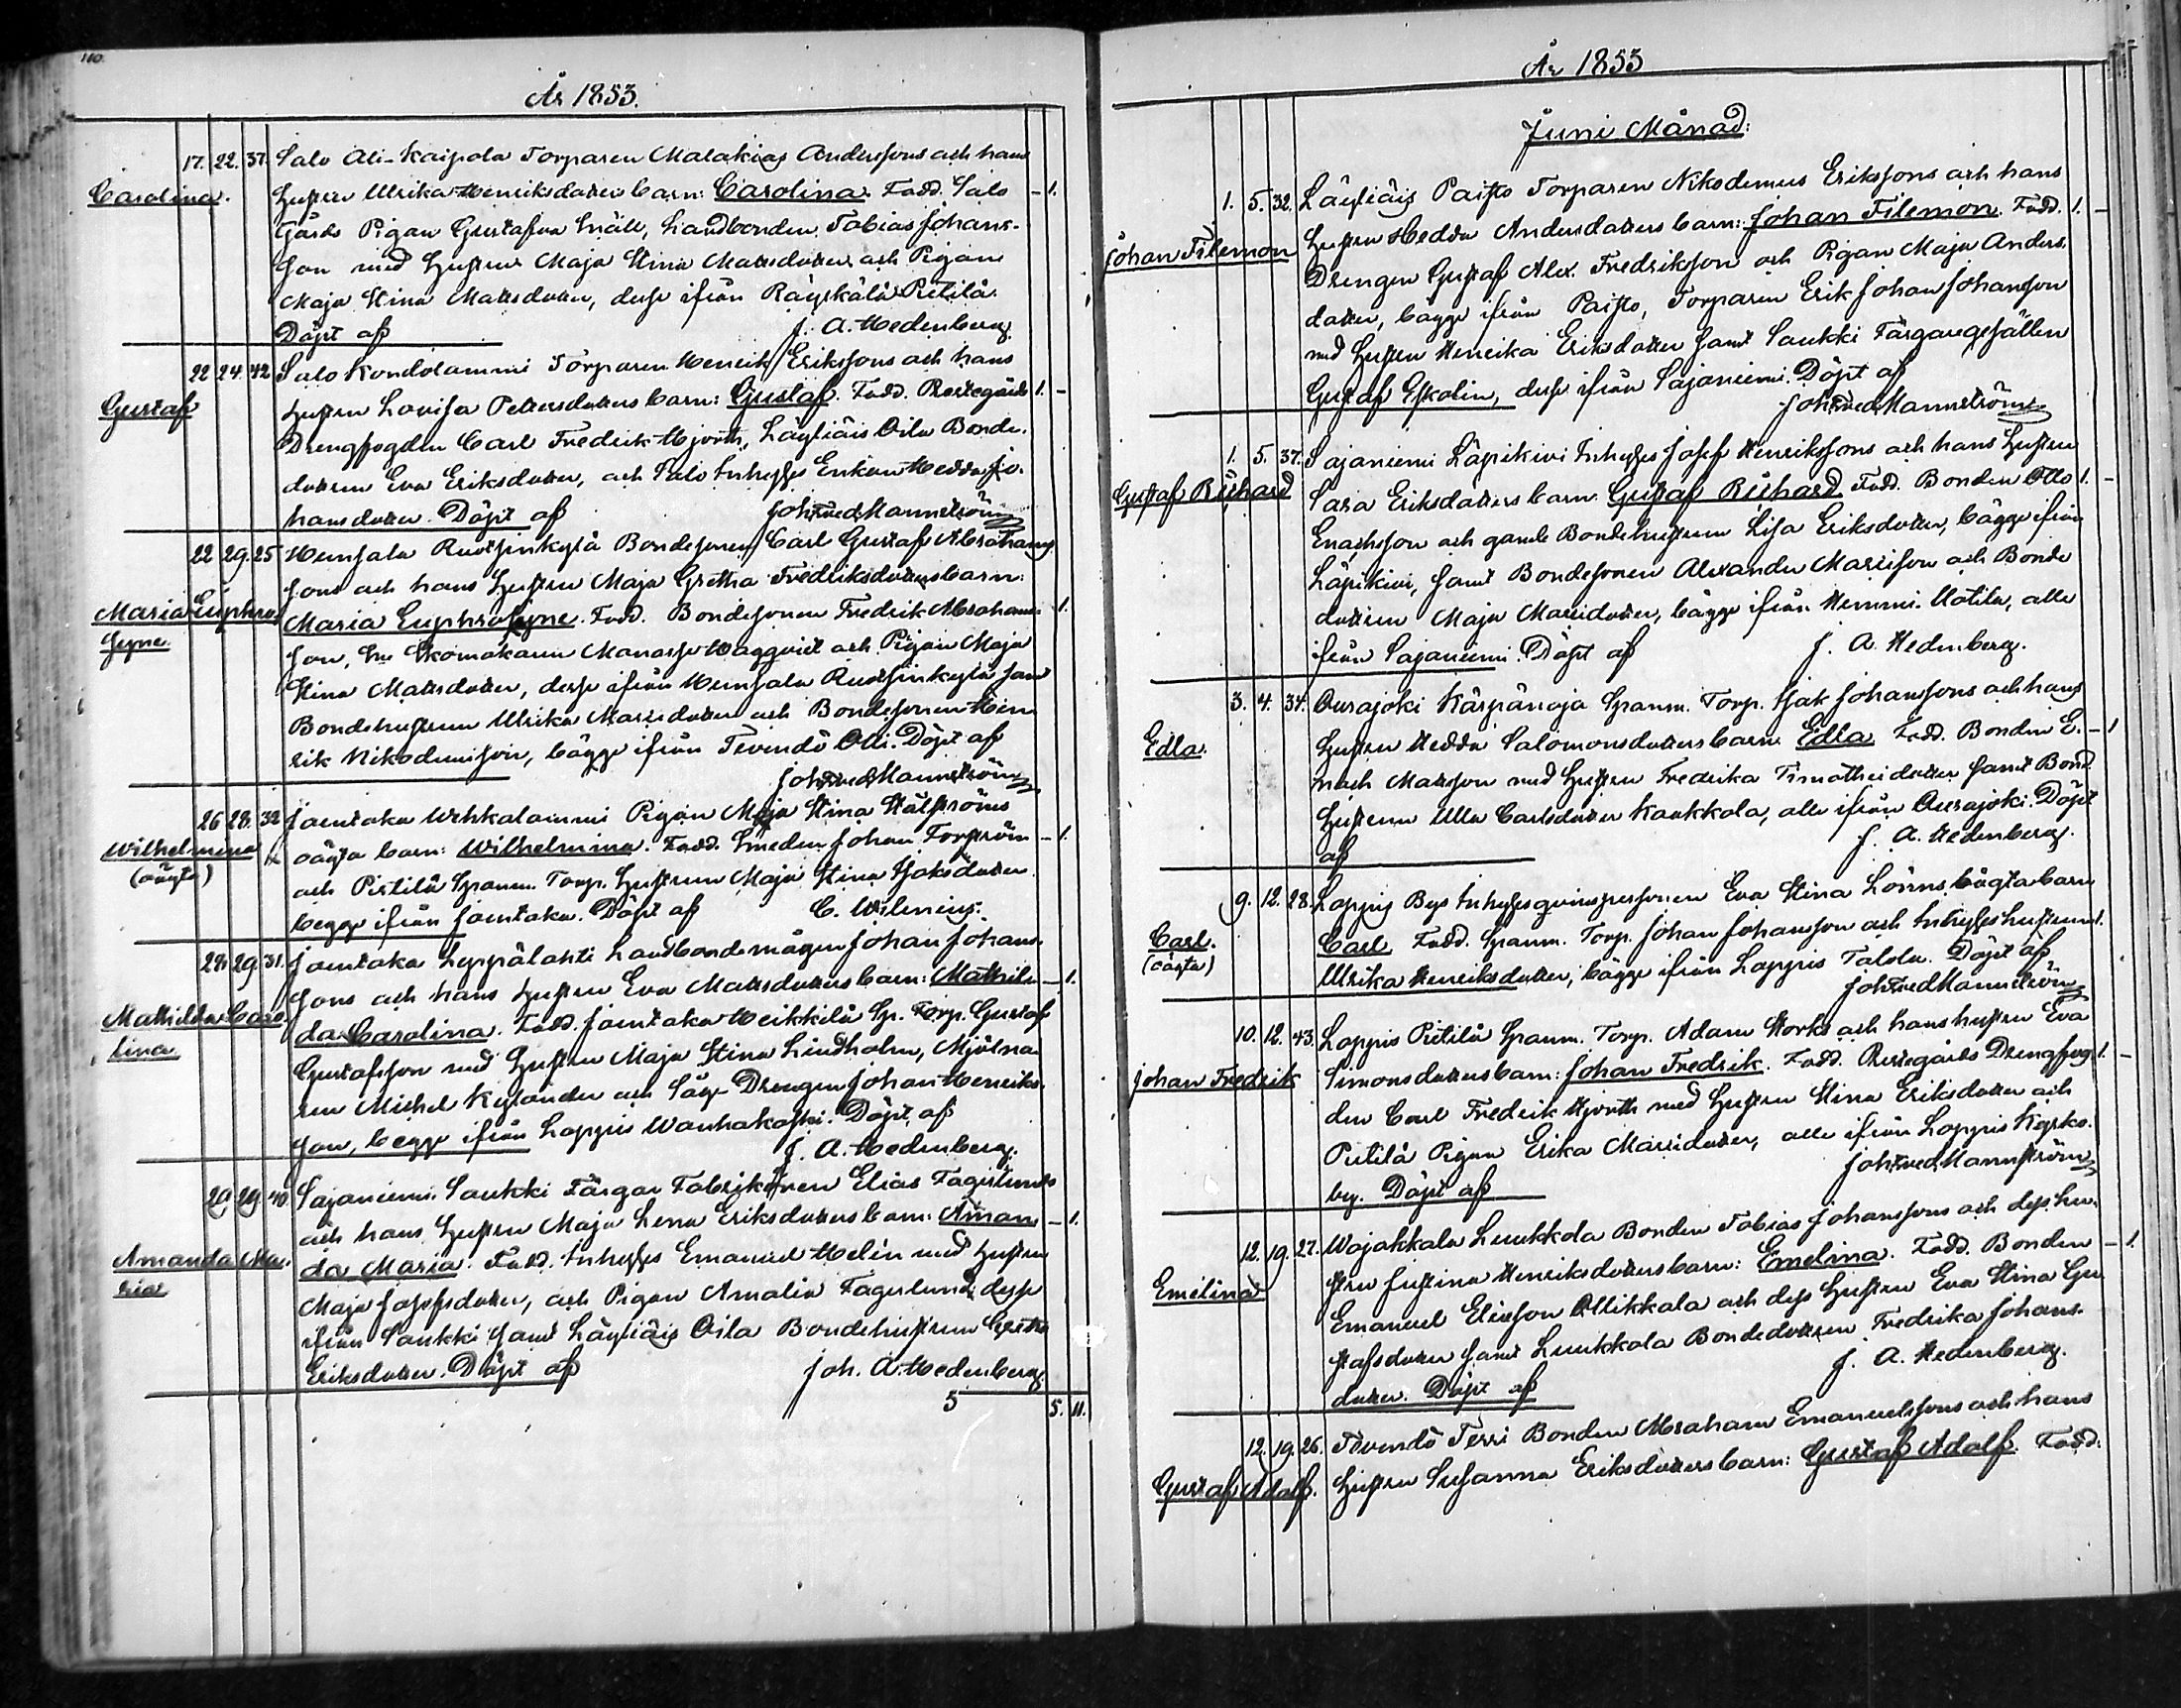 110.
År 1853.
17. 22. 37. Salo Ali-Kaipola Torparen Malakias Anderssons och hans
Carolina.
hustru Ulrika Henriksdotters barn: Carolina. Fadd. Salo – 1.
Gårds Pigan Gustafva Snäll, Landbonden Tobias Johans-
son med hustru Maja Stina Matsdotter och Pigan
Maja Stina Matsdotter, desse ifrån Räyskälä Pietilä.
Döpt af J. A. Hedenberg.
22 24. 42 Salo Kondolammi Torparen Henrik Erikssons och hans
Gustaf
hustru Lovisa Pettersdotters barn: Gustaf. Fadd. Prestegårds 1. –
Drengfogden Carl Fredrik Hjorth, Läyliäis Oila Bonde-
dottren Eva Eriksdotter, och Salo Inhyses Enkan Hedda Jo-
hansdotter. Döpt af Joh Fred Mannström
22 29. 25 Hunsala Ruotsinkylä Bondesonen Carl Gustaf Abrahams
sons och hans hustru Maja Gretha Fredriksdotters barn:
Maria Euphro-
Maria Euphrosyne. Fadd. Bondesonen Fredrik Abrahams- 1.
syne.
son, Skomakaren Manasse Wagqvist och Pigan Maja
Stina Matsdotter, desse ifrån Hunsala Ruotsinkylä samt
Bondehustrun Ulrika Mattsdotter och Bondesonen Hen
rik Nikodemusson, bägge ifrån Tevändö Olli. Döpt af
Joh Fred Mannström
26 28. 32 Jaentaka Wehkalammi Pigan Maja Stina Hälströms
Wilhelmina
(oäkta)
oäkta barn: Wilhelmina. Fadd. Smeden Johan Torström – 1.
och Pietilä Spanm. Torp. hustrun Maja Stina Isaksdotter
begge ifrån Jaentaka. Döpt af C. Wilenius.
28. 29. 31. Jaentaka Leppälahti Landbondemågen Johan Johans-
sons och hans hustru Eva Matsdotters barn: Mathil- – 1.
Mathilda Caro-
lina
da Carolina. Fadd. Jaentaka Heikkilä Sp. Torp. Gustaf
Gustafsson med hustru Maja Stina Lindholm, Mjölna-
ren Michel Kylander och Såg-Drengen Johan Henriks-
son, begge ifrån Loppis Wanhakoski. Döpt af
J. A. Hedenberg.
20 29. 40 Sajaniemi Saukki Färgar Fabrikören Elias Fagerlunds
och hans hustru Maja Lena Eriksdotters barn: Aman- – 1.
Amanda Ma-
ria
da Maria. Fadd. Inhyses Emanuel Helin med hustru
Maja Josefsdotter, och Pigan Amalia Fagerlund, desse
ifrån Saukki samt Läyliäis Oila Bondehustrun Gretha
Eriksdotter. Döpt af Joh. A. Hedenberg
5 5. 11.
År 1853
Juni Månad:
1. 5. 32. Läyliäis Paisto Torparen Nikodemus Erikssons och hans
Johan Filemon
hustru Hedda Andersdotters barn: Johan Filemon. Fadd. 1. –
Drengen Gustaf Alex. Fredriksson och Pigan Maja Anders-
dotter, bägge ifrån Paisto, Torparen Erik Johan Johansson
med hustru Henrika Eriksdotter samt Saukki Färgaregesällen
Gustaf Eskolin, desse ifrån Sajaniemi. Döpt af
Joh Fred Mannström
1. 5. 37. Sajaniemi Läpikivi Inhyses Josef Henrikssons och hans hustru
Gustaf Richard
Sara Eriksdotters barn: Gustaf Richard. Fadd. Bonden Otto 1. –
Enochsson och gamle Bondehustrun Lisa Eriksdotter, bägge ifrån
Läpikivi, samt Bondesonen Alexander Mattsson och Bonde
dottren Maja Mattsdotter, bägge ifrån Hemmi Uotila, alla
ifrån Sajaniemi. Döpt af J. A. Hedenberg.
3. 4. 34. Ourajoki Kärpänoja Spanm. Torp. Isak Johanssons och hans
Edla.
hustru Hedda Salomonsdotters barn Edla. Fadd. Bonden E- – 1
noch Matsson med hustru Fredrika Timotheidotter samt Bond-
hustrun Ulla Carlsdotter Kaukkola, alla ifrån Ourajoki. Döpt
af J. A. Hedenberg.
9. 12. 28. Loppis Bys Inhyses qvinspersonen Eva Stina Lönns oägta barn
Carl.
(oägta)
Carl. Fadd. Spanm. Torp. Johan Johansson och Inhyses hustrun 1.
Ulrika Henriksdotter, bägge ifrån Loppis Talola. Döpt af
Joh Fred Mannström
10. 12. 43. Loppis Pietilä Spanm. Torp. Adam Storks och hans hustru Eva
Johan Fredrik
Simonsdotters barn: Johan Fredrik. Fadd. Prestegårds Drengfog- 1. –
den Carl Fredrik Hjorth med hustru Stina Eriksdotter och
Pietilä Pigan Erika Mattsdotter, alla ifrån Loppis Kyrko-
by. Döpt af Joh Fred Mannström
12. 19. 27. Wojakkala Luukkola Bonden Tobias Johanssons och dess hu-
Emelina
stru Justina Henriksdotters barn: Emelina. Fadd. Bonden – 1.
Emanuel Eliasson Ollikkala och dess hustru Eva Stina Gu
stafsdotter samt Luukkola Bondedottren Fredrika Johans-
dotter. Döpt af J. A. Hedenberg.
12. 19. 26. Tevändö Terri Bonden Abraham Emanuelssons och hans
Gustaf Adolf.
hustru Susanna Eriksdotters barn: Gustaf Adolf. Fadd: